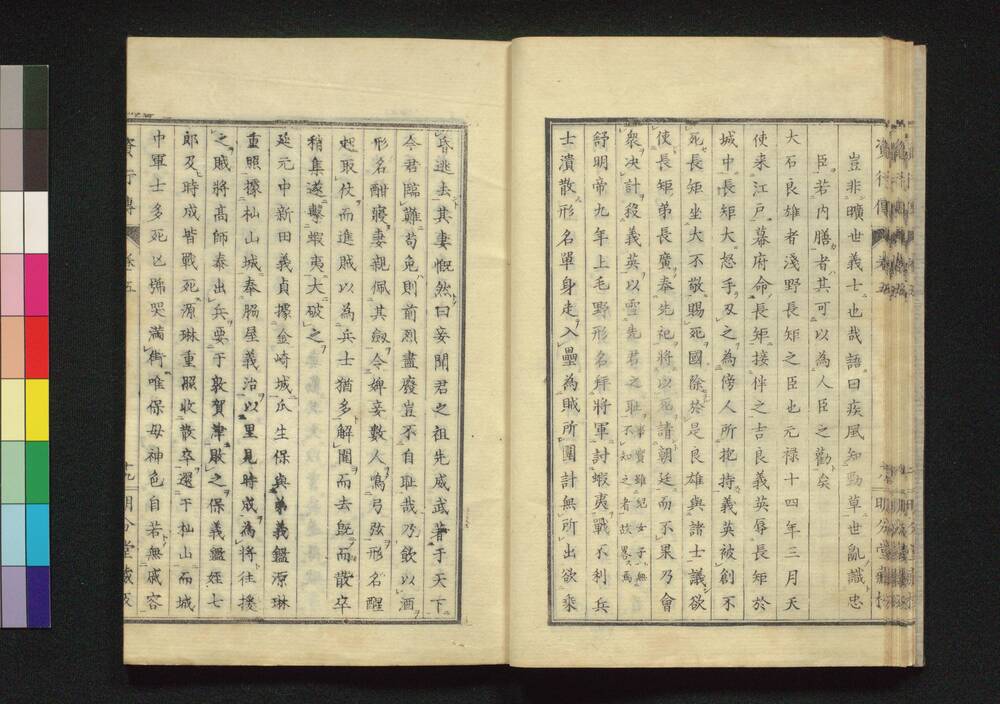 豈非曠世義士也哉語曰疾風知勁草世亂識忠
臣若内膳者其可以為人臣之勸矣
大石良雄者淺野長矩之臣也元禄十四年三月天
使来江戸幕府命長矩接伴之吉良義英辱長矩於
城中長矩大怒手刃之為傍人所抱持義英被創不
死長矩坐大不敬賜死國除於是良雄與諸士議欲
使長矩弟長廣奉先祀將以死請朝廷而不果乃會
衆决計殺義英以雪先君之耻事實雖紀女子無不知之者故畧焉
舒明帝九年上毛野形名拜將軍討蝦夷戰不利兵
士潰散形名單身走入壘為賊所圍計無所出欲乗
昏逃去其妻慨然曰妾聞君之祖先威武著于天下
今君臨難苟免則前烈盡廢豈不自耻哉乃飲以酒
形名酣寝妻親佩其劔令婢妾數人鳴弓弦形名醒
起取仗而進賊以為兵士猶多解圍而去既而散卒
稍集遂擊蝦夷大破之
延元中新田義貞據金崎城瓜生保與弟義鑑源琳
重照據杣山城奉脇屋義治以里見時成為將往援
之賊將髙師泰出兵要于敦賀津敗之保義鑑姪七
郎及時成皆戰死源琳重照收散卒還于杣山而城
中軍士多死亡怖哭満街唯保母神色自若無戚容
資行傳 巻五
十九 明分堂蔵板